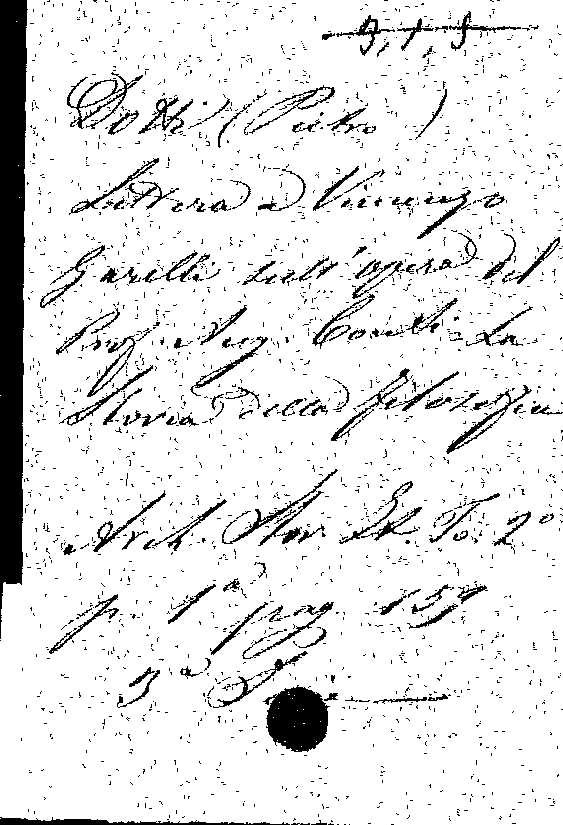 3, 1, 5
Dotti (Pietro)
Lettera a Vincenzo
Garelli sull'opera del
Prof. Aug. Conti - La
Storia della filosofia
Arch. Stor. It. To. 2º
p. 1ª pag. 159
3ª